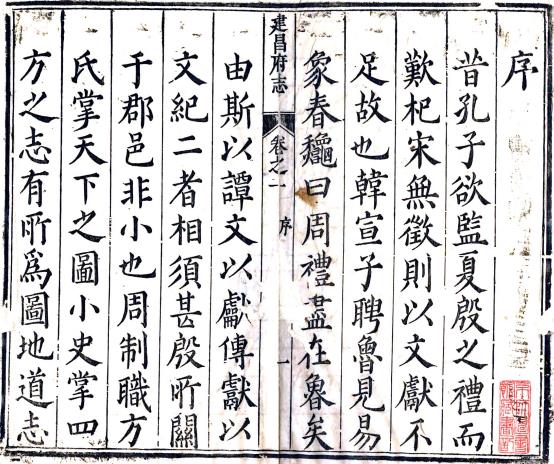 序
昔孔子欲監夏殷之禮而
歎杞宋無徵則以文獻不
足故也韓宣子聘魯見易
象春龝曰周禮盡在魯矣
建昌府志 卷之二 序 一
由斯以譚文以獻傳獻以
文紀二者相須甚殷所關
于郡邑非小也周制職方
氏掌天下之圖小史掌四
方之志有所爲圖地道志